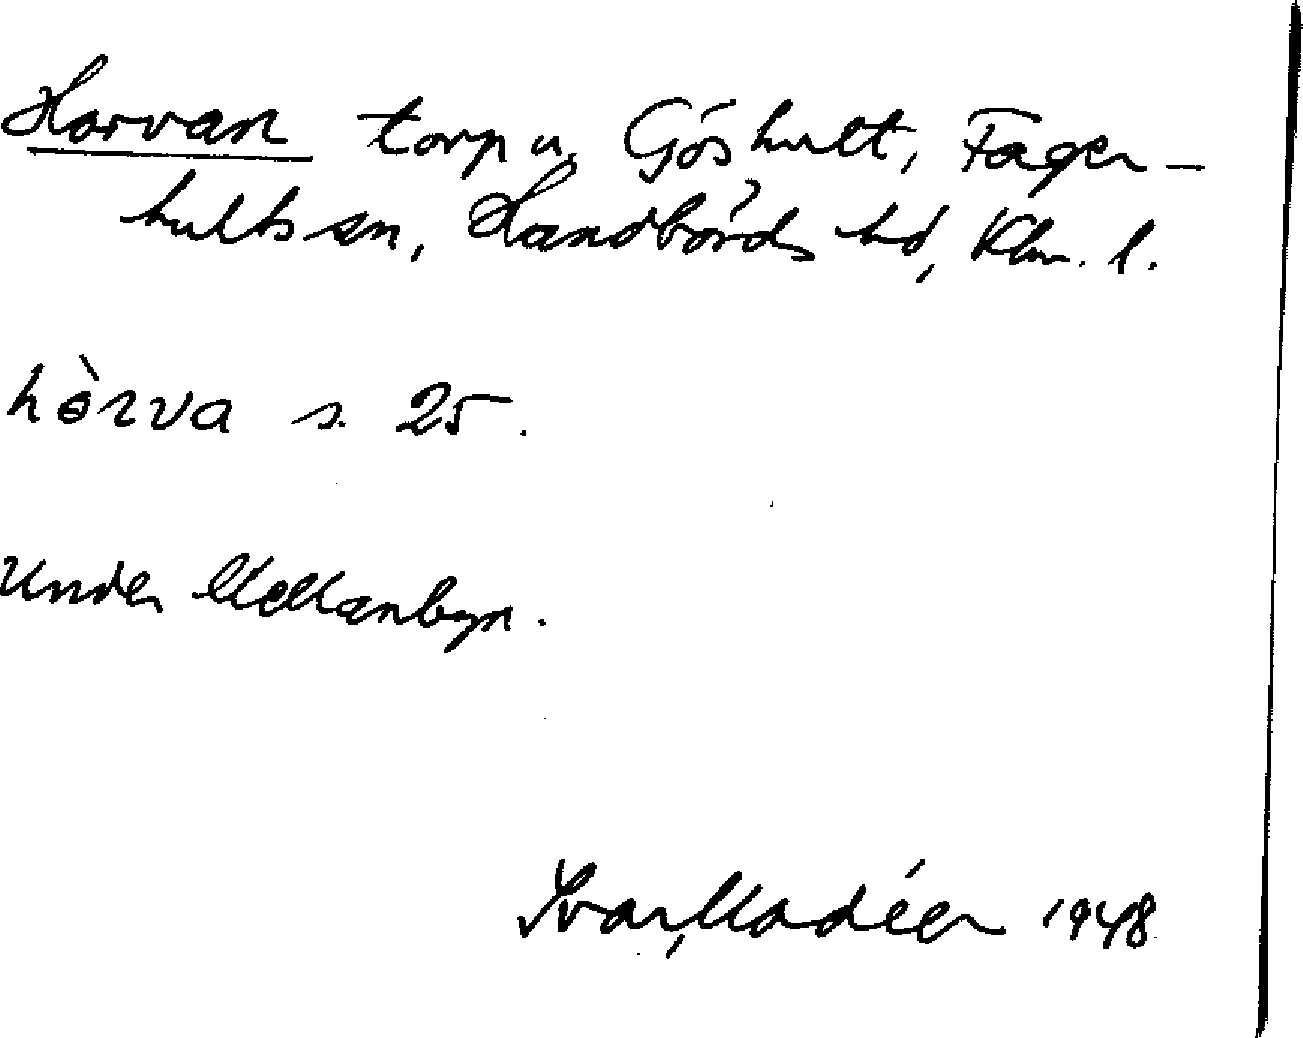 Horvan torp u. Gjöshult, Fager-
hults sn, Handbörds hd, Klm. l.
hòrva s. 25.
Under Mellanbyn.
Ivar Modéer 1948